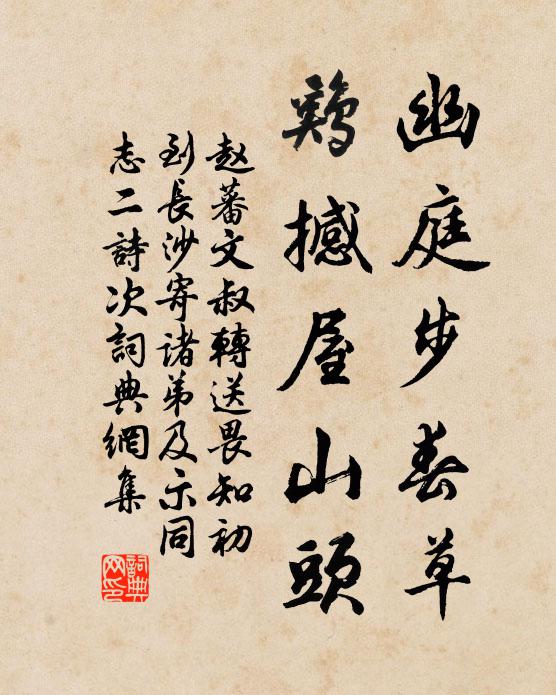 幽庭步春草
鷄撼屋山頭
赵蕃文叔轉送畏知初
到長沙寄諸弟及示同
志二詩次詞典網集
詞典
网印